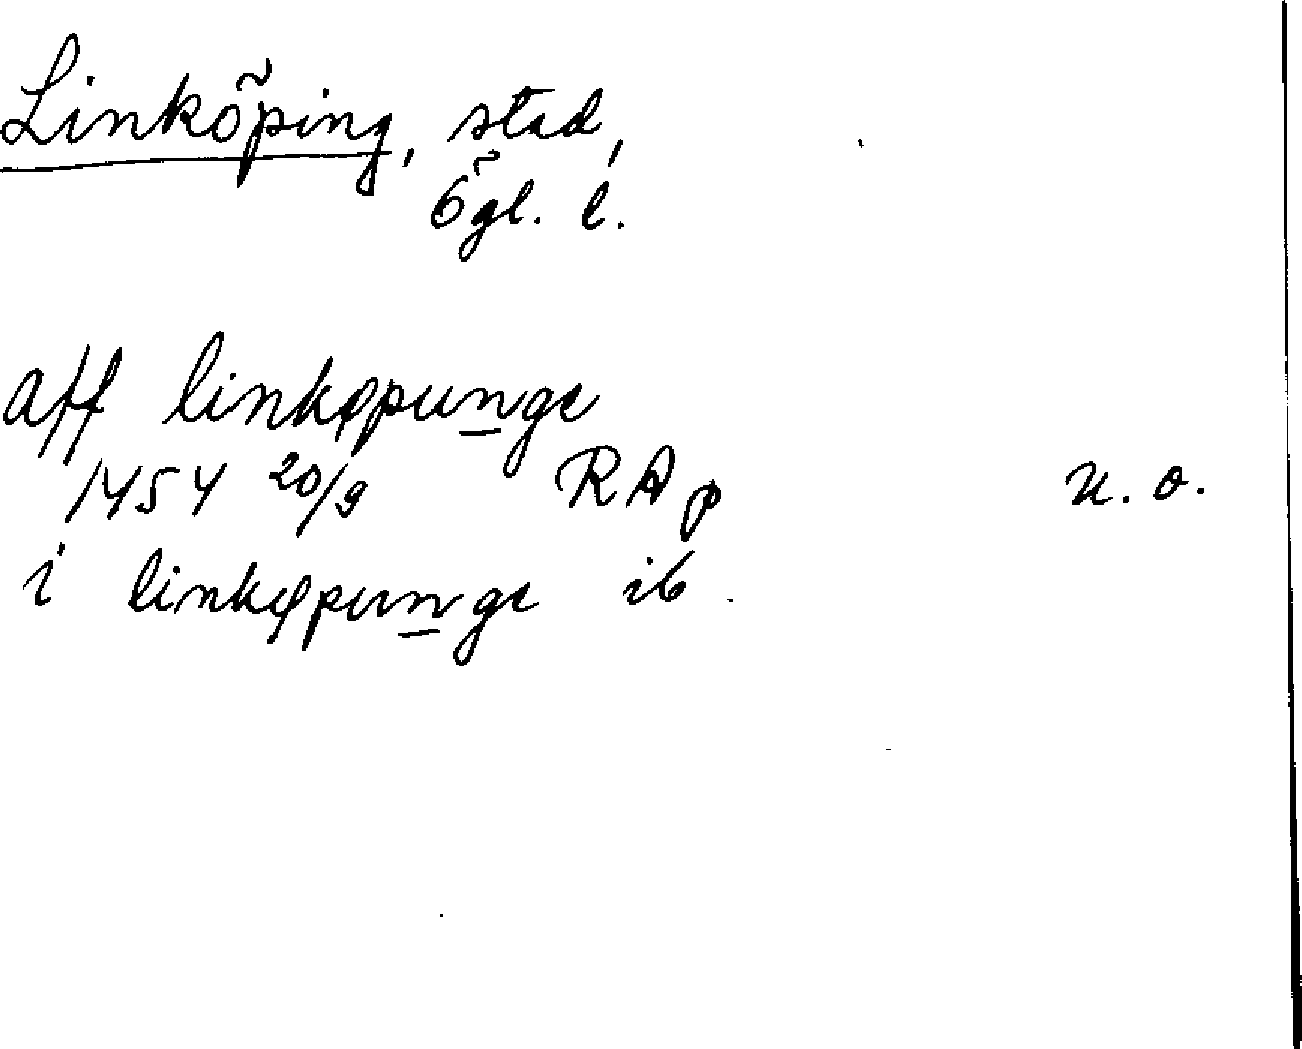 Linköping, stad,
Ögl. l.
aff linkøpunge
1454 20/9 RAp u. o.
i linkøpunge ib.